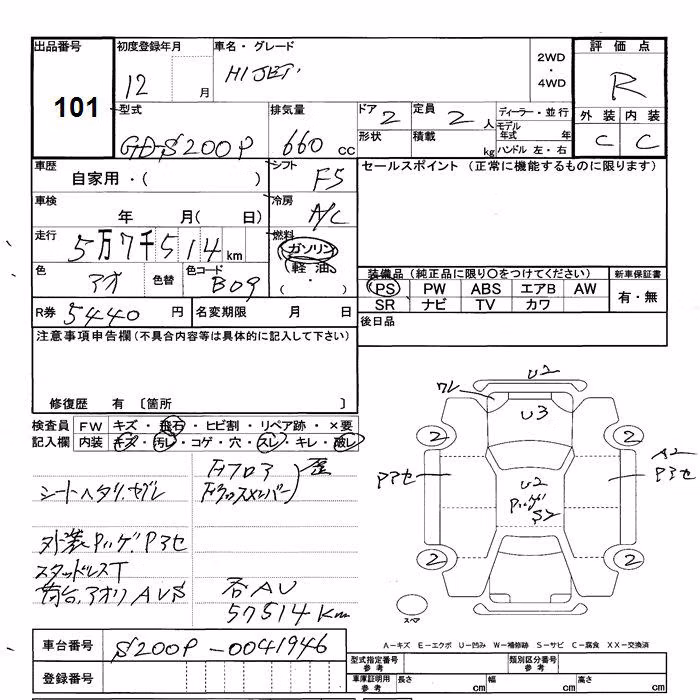 出品番号 初度登録年月 車名・グレード 評価点
101 12 月 HIJET. 2WD・4WD R
型式 排気量 ドア 2 定員 2 人 ディーラー・並行 外装 内装
GD-S200P 660 cc 形状 積載 kg モデル年式 年 ハンドル 左・右 C C
車歴 シフト セールスポイント (正常に機能するものに限ります)
自家用・( ) F5
車検 冷房
年 月( 日) A/C
走行 5万7千514 km 燃料
ガソリン
色 アオ 色替 色コード B09 (軽油・ )
装備品 (純正品に限り○をつけてください) 新車保証書
PS PW ABS エアB AW 有・無
SR ナビ TV カワ
R券 5440 円 名変期限 月 日 後日品
注意事項申告欄 (不具合内容等は具体的に記入して下さい)
修復歴 有 〔箇所 〕
検査員 FW キズ・飛石・ヒビ割・リペア跡・×要
記入欄 内装 キズ・汚レ・コゲ・穴・スレ・キレ・破レ
Fフロア
Fクロスメンバー) 歪
シートヘタリ、ヤブレ
外装Pハゲ、Pアセ
スタッドレスT
荷台、アオリAUS 各AU
57514Km
U2
ワレ
U3
2 2
Pアセ A2
Pアセ
U2
Pハゲ
S2
2 2
スペア
A-キズ E-エクボ U-凹み W-補修跡 S-サビ C-腐食 XX-交換済
車台番号 S200P-0041946
型式指定番号 参考 類別区分番号 参考
登録番号 車庫証明用 参考 長さ cm 幅 cm 高さ cm